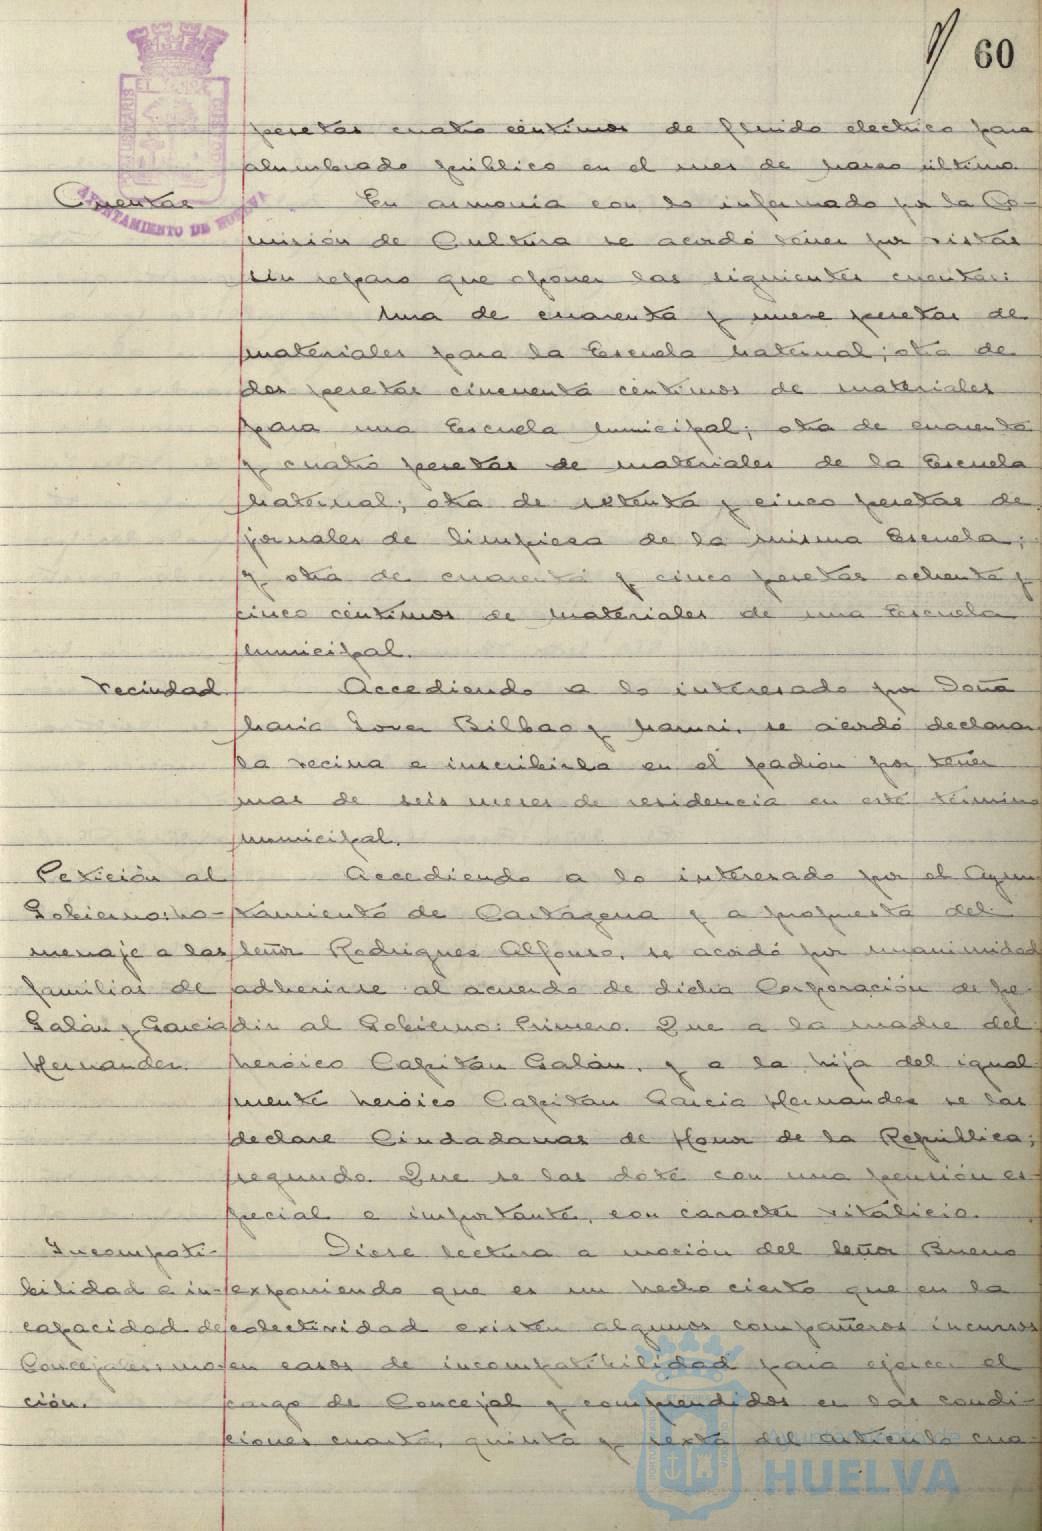 60
pesetas cuatro céntimos de fluido electrico para
alumbrado público en el mes de Marzo último.
Cuentas
En armonía con lo informado por la Co-
misión de Cultura se acordó tener por vistas
sin reparo que oponer las siguientes cuentas:
Una de cuarenta y nueve pesetas de
materiales para la Escuela Maternal; otra de
dos pesetas cincuenta céntimos de materiales
para una Escuela Municipal; otra de cuarenta
y cuatro pesetas de materiales de la Escuela
Maternal; otra de setenta y cinco pesetas de
jornales de limpieza de la misma Escuela;
y otra de cuarenta y cinco pesetas ochenta y
cinco céntimos de materiales de una Escuela
Municipal.
Vecindad
Accediendo a lo interesado por Doña
María Bilbao y se acordó declarar
la vecina e inscribirla en el padrón por tener
mas de seis meses de residencia en este término
municipal.
Petición al
Gobierno: ho-
menaje a las
familias de
Galán y García
Hernandez.
Accediendo a lo interesado por el Ayun
tamiento de Cartagena y a propuesta del
Señor Rodriguez Alfonso, se acordó por unanimidad
adherirse al acuerdo de dicha Corporación de pe-
dir al Gobierno: Primero. Que a la madre del
heróico Capitán Galán, y a la hija del igual
mente heróico Capitán García Hernandez se las
declare Ciudadanas de Honor de la República;
segundo. Que se las dote con una pensión es-
pecial e importante, con caracter vitalicio.
Incompati-
bilidad e in-
capacidad de
Concejales: mo-
ción.
Diose lectura a moción del Señor Bueno
exponiendo que es un hecho cierto que en la
colectividad existen algunos compañeros incursos
en casos de incompatibilidad para ejercer el
cargo de Concejal y comprendidos en las condi-
ciones cuarta, quinta y sexta del artículo cua-
AYUNTAMIENTO DE HUELVA
HUELVA